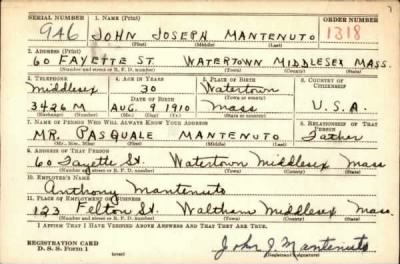 SERIAL NUMBER 1. NAME (Print) ORDER NUMBER
946 JOHN JOSEPH MANTENUTO 1318
(First) (Middle) (Last)
2. ADDRESS (Print)
60 FAYETTE ST. WATERTOWN MIDDLESEX MASS.
(Number and street or R. F. D. number) (Town) (County) (State)
3. TELEPHONE 4. AGE IN YEARS 5. PLACE OF BIRTH 6. COUNTRY OF CITIZENSHIP
Middlesex 30 Watertown
DATE OF BIRTH (Town or county)
3426M AUG. 9 1910 Mass U.S.A.
(Exchange) (Number) (Mo.) (Day) (Yr.) (State or country)
7. NAME OF PERSON WHO WILL ALWAYS KNOW YOUR ADDRESS 8. RELATIONSHIP OF THAT PERSON
MR. PASQUALE MANTENUTO Father
(Mr., Mrs., Miss) (First) (Middle) (Last)
9. ADDRESS OF THAT PERSON
60 Fayette St. Watertown Middlesex Mass
(Number and street or R. F. D. number) (Town) (County) (State)
10. EMPLOYER'S NAME
Anthony Mantenuto
11. PLACE OF EMPLOYMENT OR BUSINESS
123 Felton St. Waltham Middlesex Mass.
(Number and street or R. F. D. number) (Town) (County) (State)
I AFFIRM THAT I HAVE VERIFIED ABOVE ANSWERS AND THAT THEY ARE TRUE.
REGISTRATION CARD
D. S. S. Form 1 (over) John J. Mantenuto
(Registrant's signature)